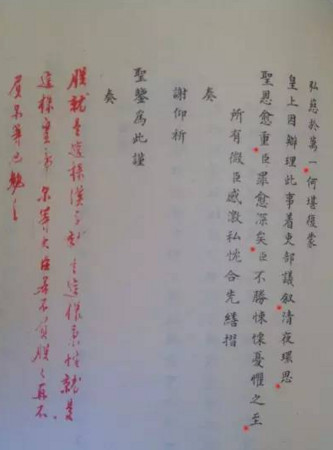 弘慈於萬一何堪復蒙
皇上因辦理此事着吏部議叙清夜環思
聖恩愈重臣罪愈深矣臣不勝悚慄憂懼之至
所有微臣感激私忱合先繕摺
奏
謝仰祈
聖鑒為此謹
奏
朕就是這樣漢子就是這樣秉性就是
這樣皇帝爾等大臣若不負朕朕再不
負爾等也勉之